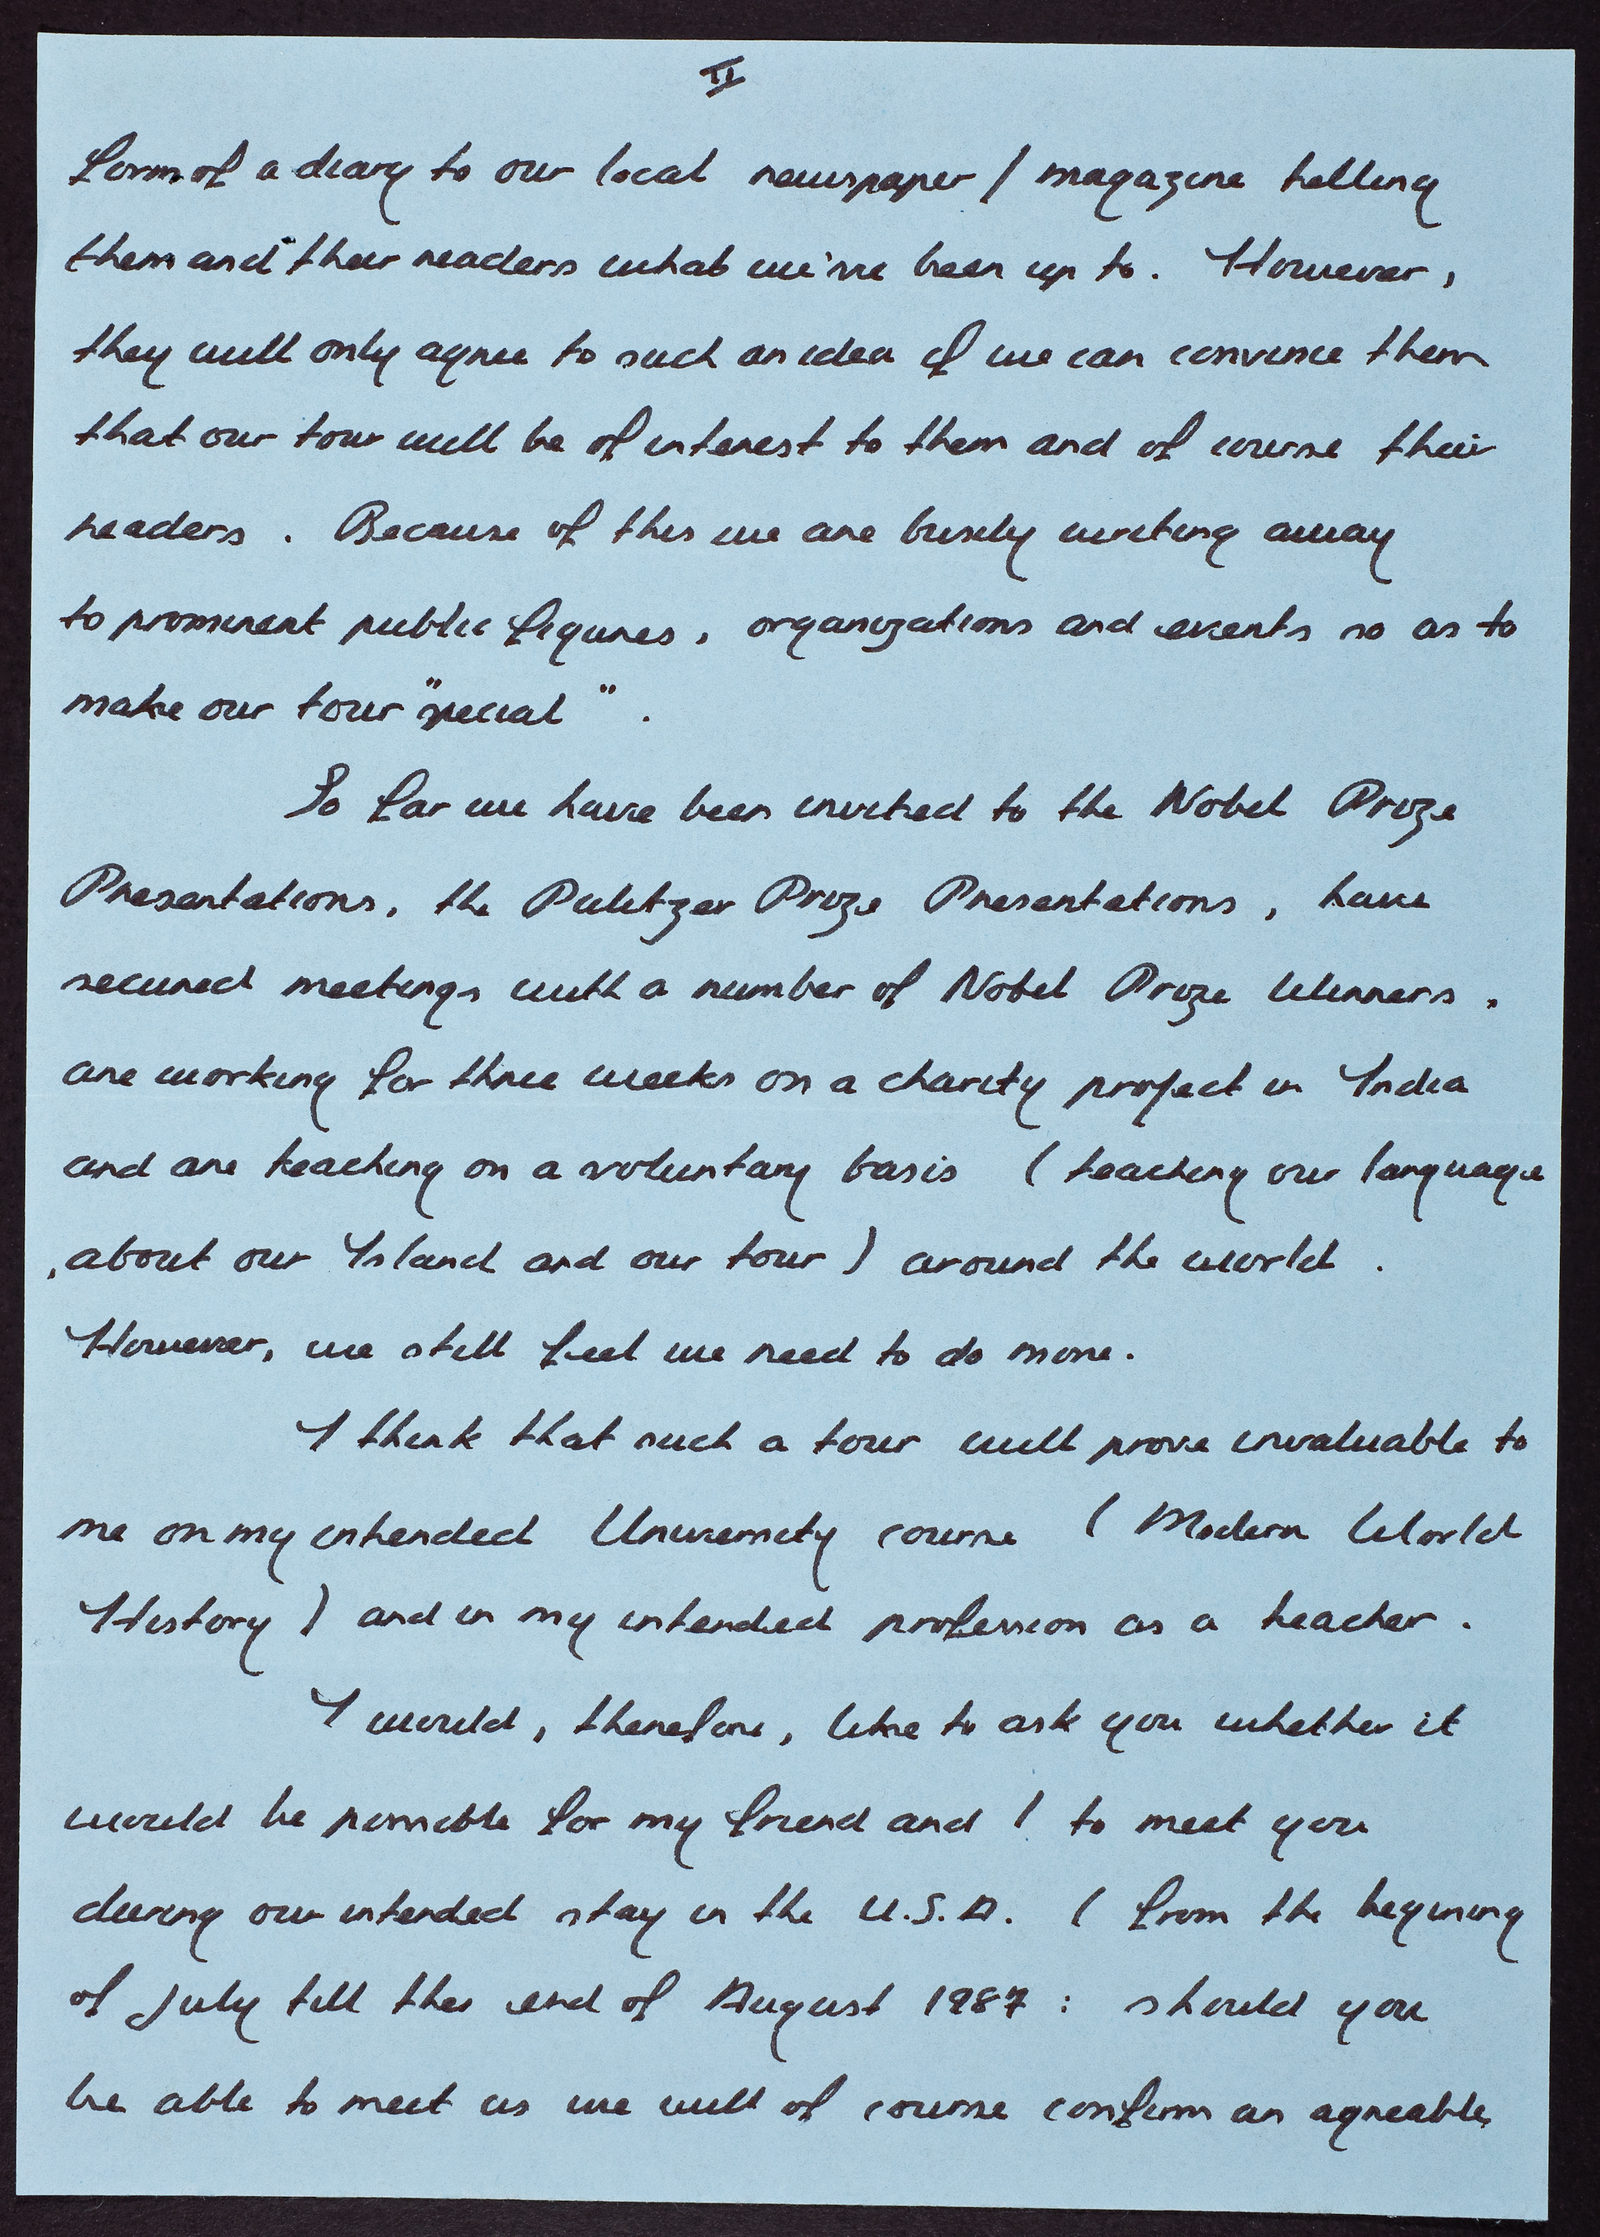 II
form of a diary to our local newspaper / magazine telling
them and their readers what we've been up to. However,
they will only agree to such an idea if we can convince them
that our tour will be of interest to them and of course their
readers. Because of this we are busily writing away
to prominent public figures, organizations and events so as to
make our tour "special".
So far we have been invited to the Nobel Prize
Presentations, the Pulitzer Prize Presentations, have
secured meetings with a number of Nobel Prize Winners,
are working for three weeks on a charity project in India
and are teaching on a voluntary basis (teaching our language
, about our Island and our tour) around the world.
However, we still feel we need to do more.
I think that such a tour will prove invaluable to
me on my intended University course (Modern World
History) and in my intended profession as a teacher.
I would, therefore, like to ask you whether it
would be possible for my friend and I to meet you
during our intended stay in the U.S.A. (from the begining
of July till the end of August 1987: should you
be able to meet us we will of course confirm an agreable